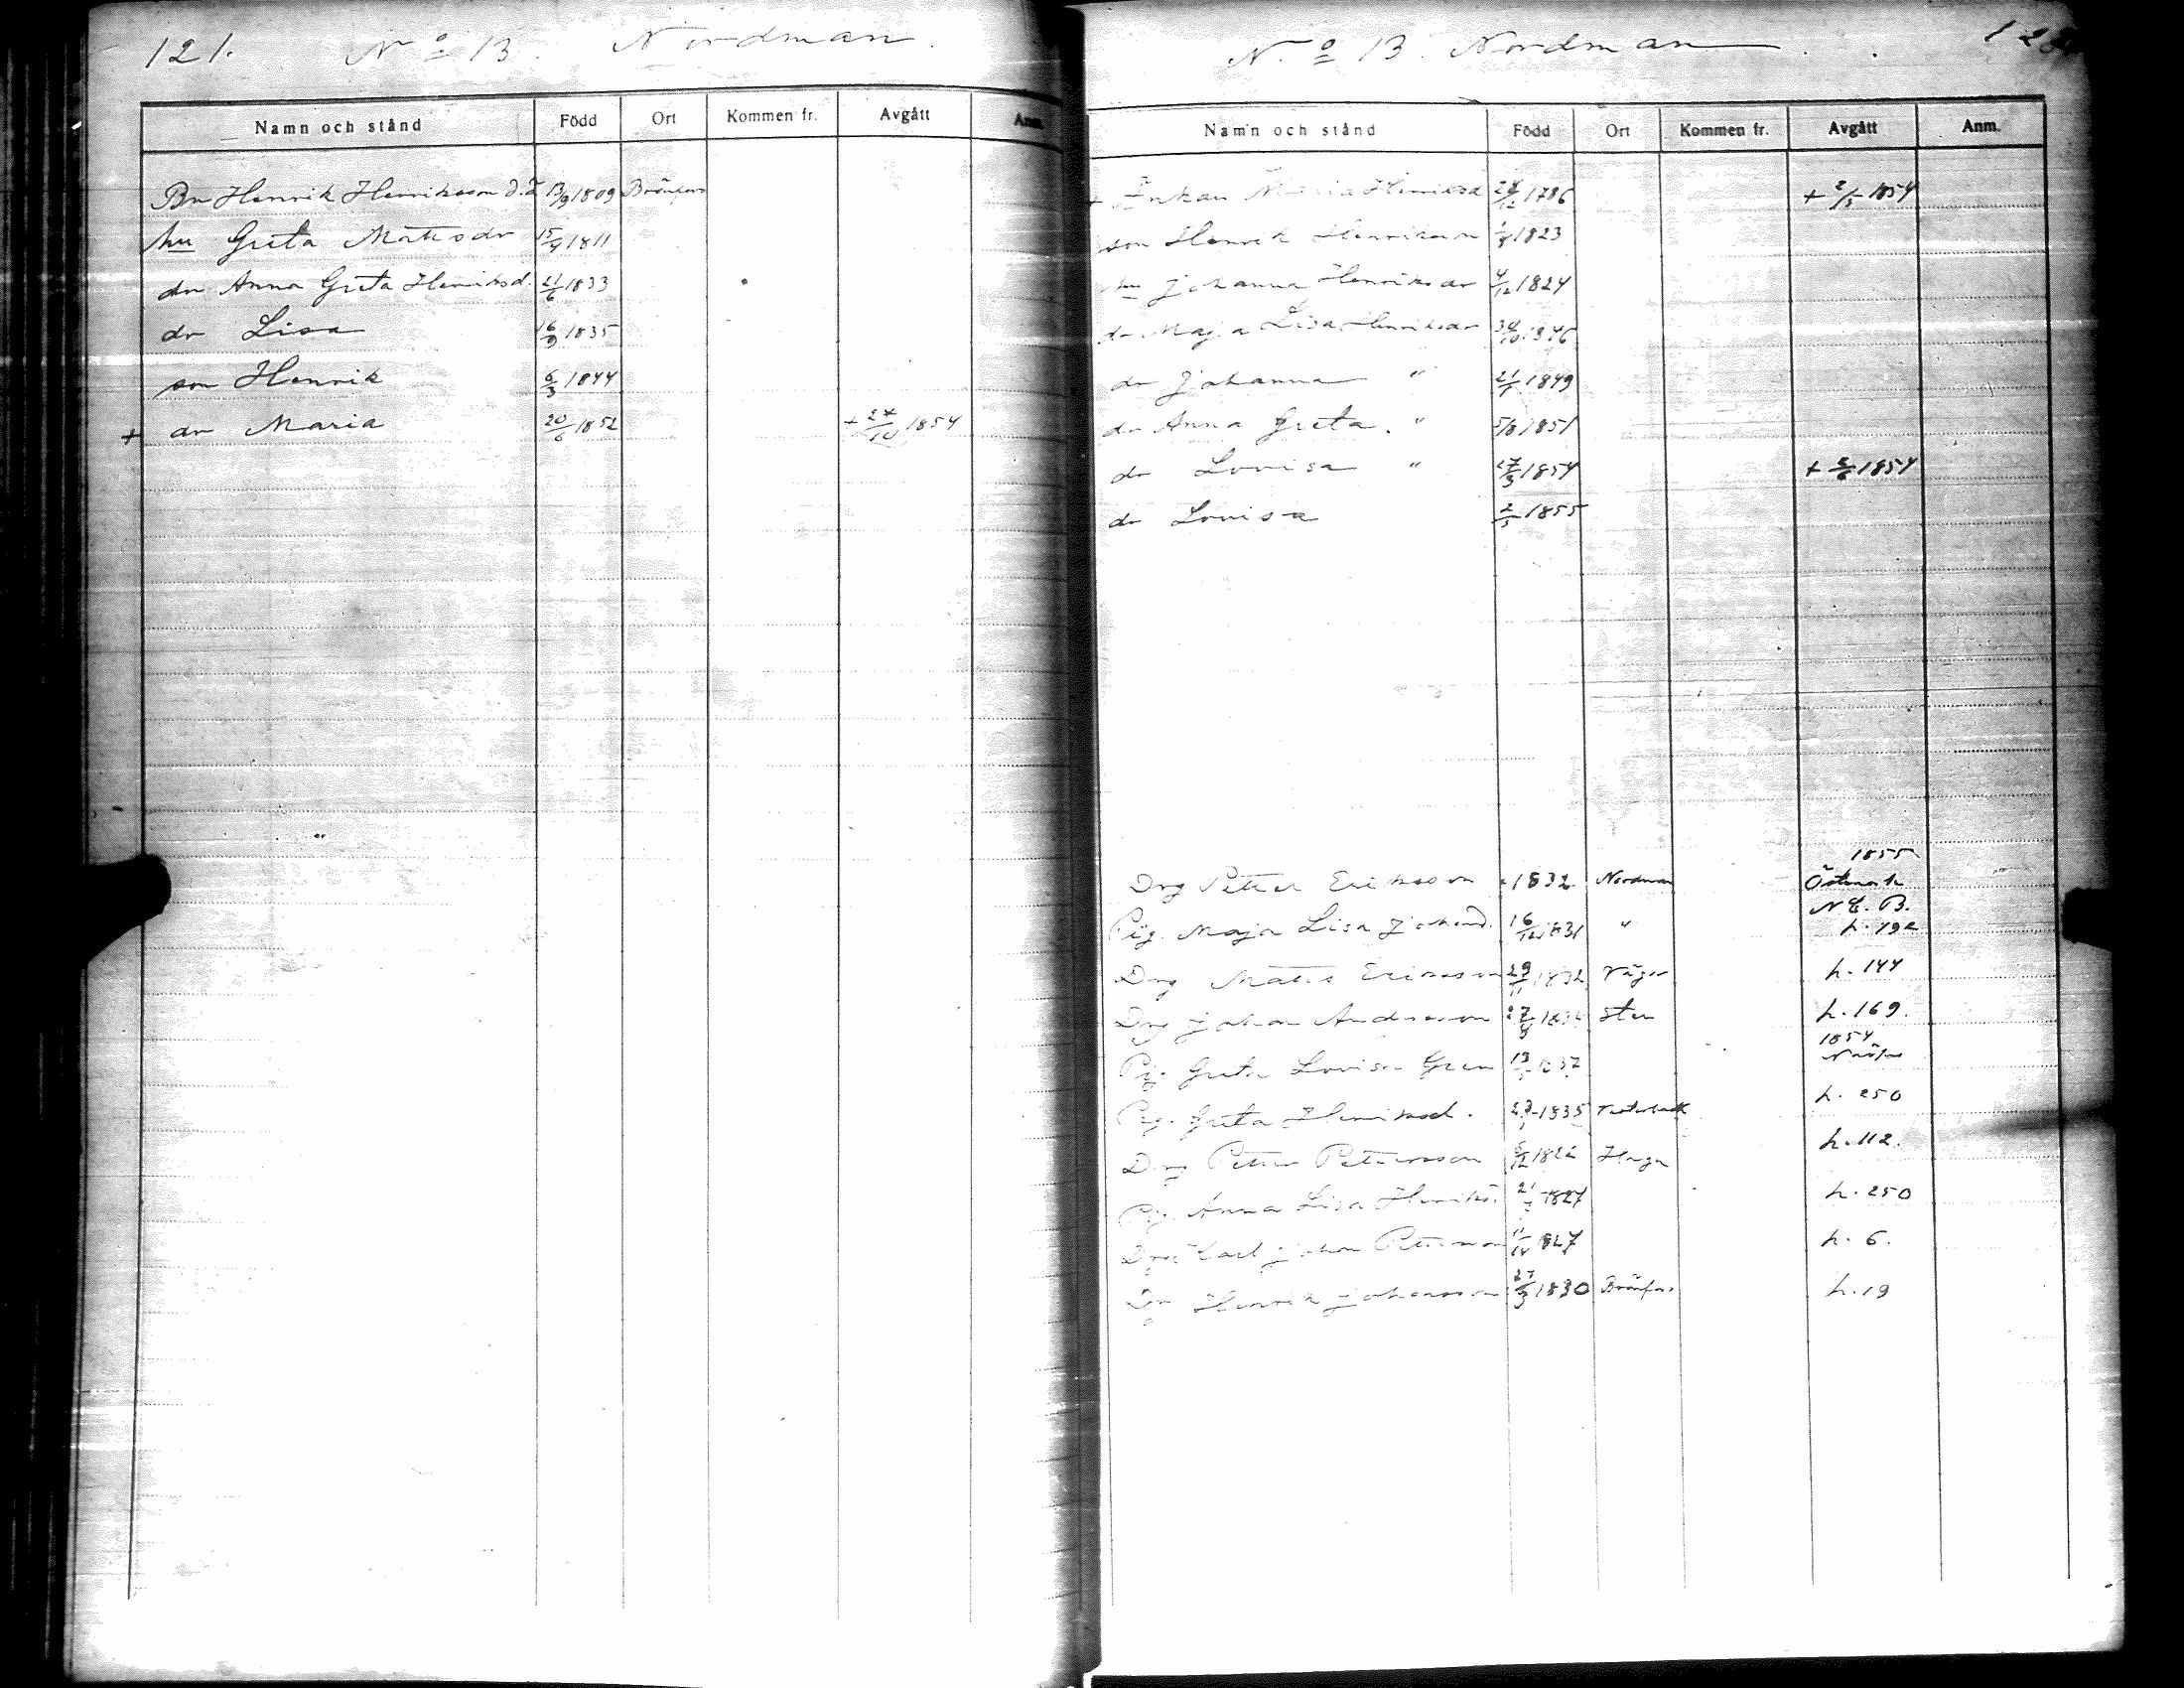 121. No 13. Nordman.
Namn och stånd Född Ort Kommen fr. Avgått Anm.
Bn Henrik Henriksson d.ä. 13/9 1809 Brönfors
hu Greta Matsdr 15/9 1811
dr Anna Greta Henriksd. 21/6 1833
dr Lisa 16/9 1835
son Henrik 6/3 1844
+ dr Maria 20/6 1852 + 24/10 1854
No 13. Nordman
Namn och stånd Född Ort Kommen fr. Avgått Anm.
+ Enkan Maria Henriksd 28/12 1786 + 2/5 1854
son Henrik Henriksson 1823
hu Johanna Henriksdr 4/12 1824
dr Maja Lisa Henriksdr 1846
dr Johanna " 1849
dr Anna Greta " 5/8 1851
dr Lovisa " 27/3 1854 + 1854
dr Lovisa 2/5 1855
1855
Drg Petter Eriksson 1832 Nordman Östmark
N.C.B.
Pig. Maja Lisa Johand. 16/12 1831 " h. 192
Drg Mats Eriksson 29/11 1832 h. 144
Drg Johan Andersson Sten h. 169.
1854
Pig. Greta Lovisa Gren
Pig. Greta Henriksd. 1835 h. 250
Drg Petter Petersson Haga h. 112.
Pig. Anna Lisa Henriksd. 1827 h. 250
Drg Carl Johan Petersson 1827 h. 6.
Dr Henrik Johansson 27/3 1830 Brönfors h. 19